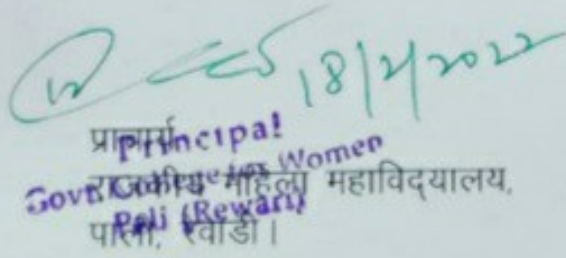 18/2/2022
प्राचार्य
Principal
राजकीय महिला महाविद्यालय,
Govt. College for Women
पाली, रेवाड़ी।
Pali (Rewari)